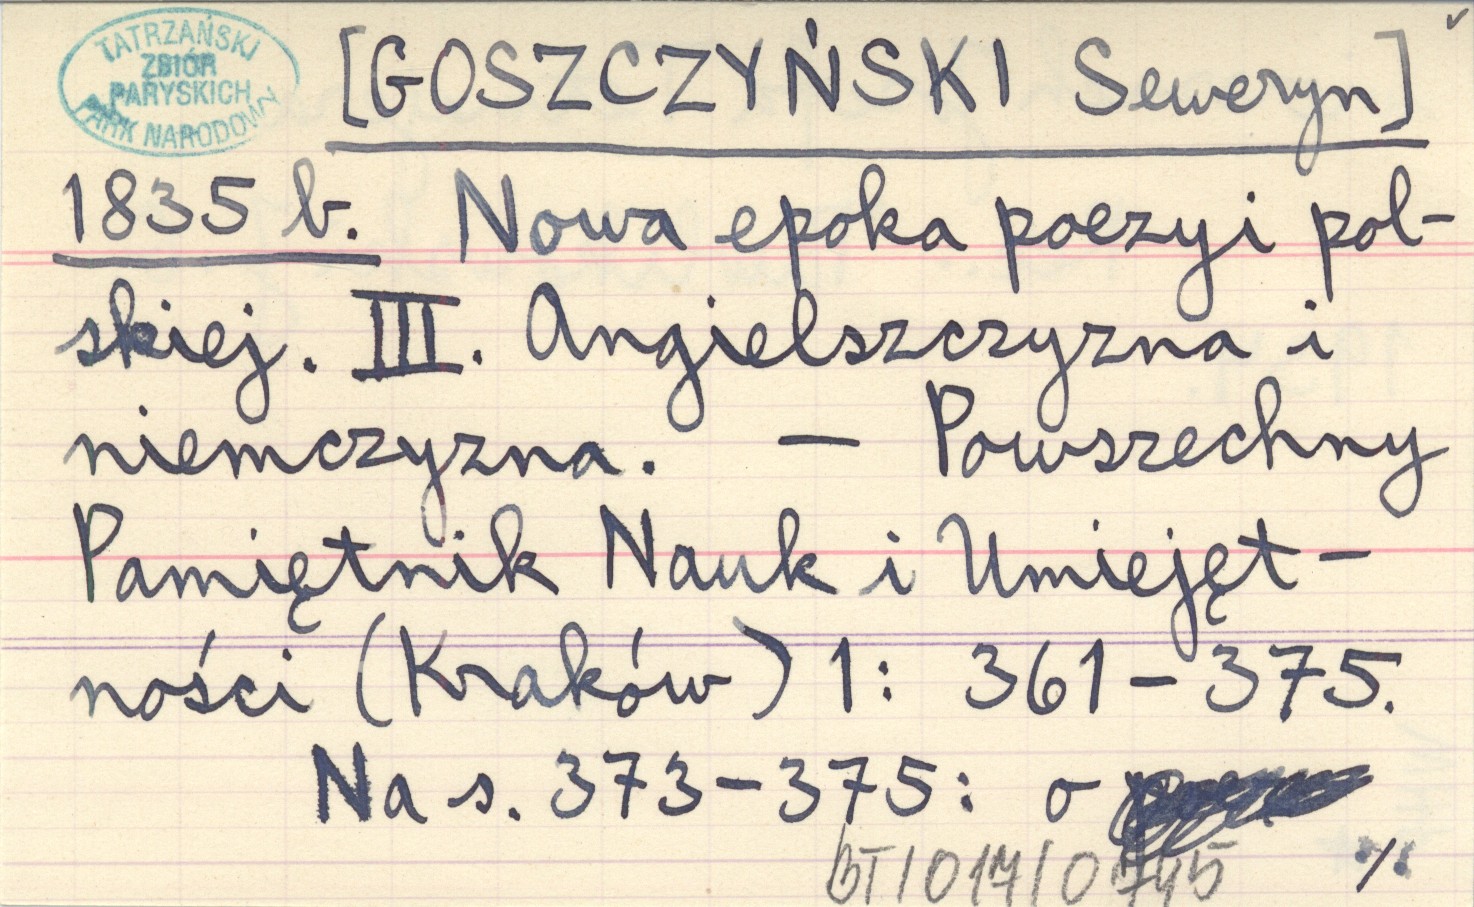 TATRZAŃSKI
ZBIÓR
PARYSKICH
PARK NARODOWY
[GOSZCZYŃSKI Seweryn]
1835 b. Nowa epoka poezyi pol-
skiej. III. Angielszczyzna i
niemczyzna. — Powszechny
Pamiętnik Nauk i Umiejęt-
ności (Kraków) 1: 361-375.
Na s. 373-375: o
BT/017/0745
./.